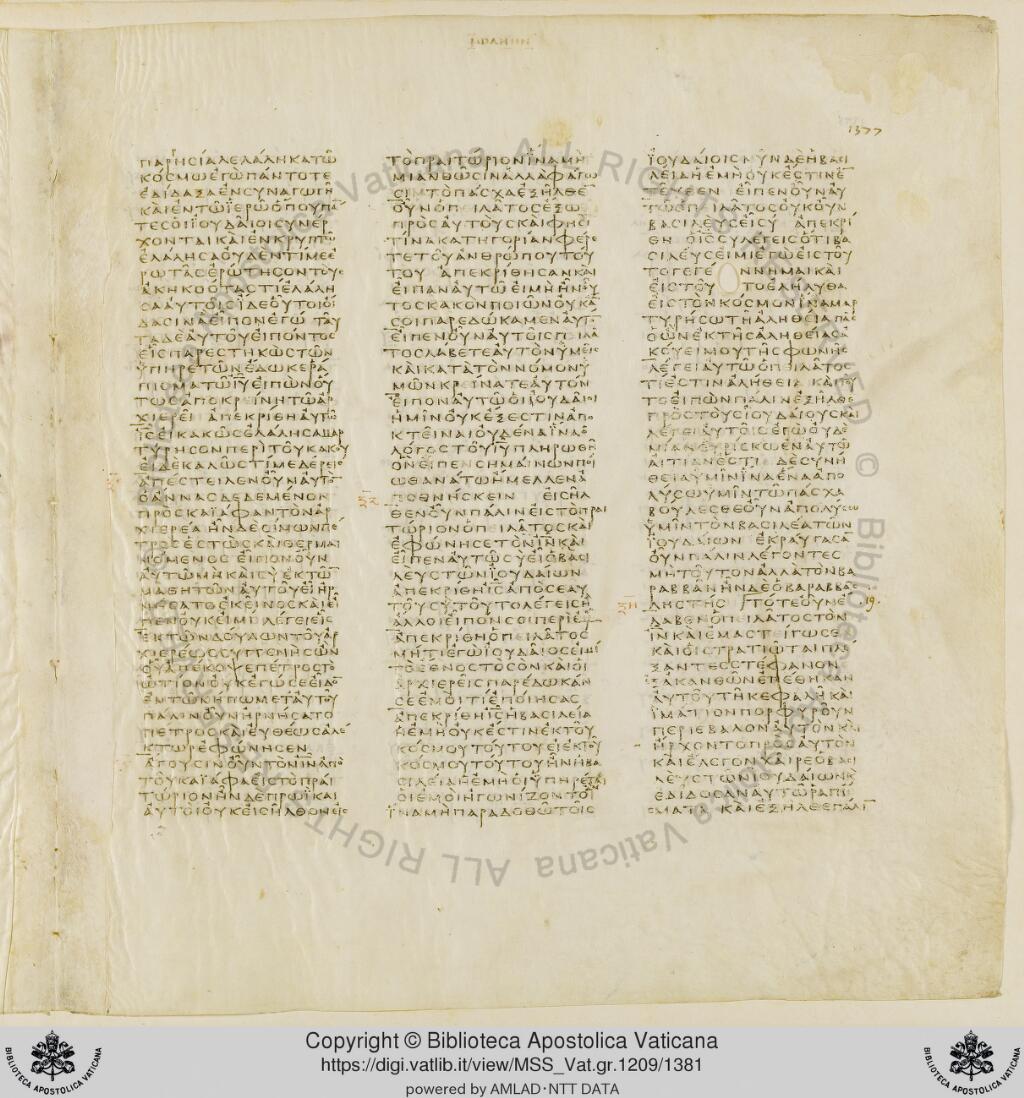 1377
ΠΑΡΗΣΙΑΛΕΛΑΛΗΚΑΤΩ
ΚΟΣΜΩΕΓΩΠΑΝΤΟΤΕ
ΕΔΙΔΑΞΑΕΝΣΥΝΑΓΩΓΗ
ΚΑΙΕΝΤΩΙΕΡΩΟΠΟΥΠΑ
ΤΕΣΟΙΙΟΥΔΑΙΟΙΣΥΝΕΡ
ΧΟΝΤΑΙΚΑΙΕΝΚΡΥΠΤΩ
ΕΛΑΛΗΣΑΟΥΔΕΝΤΙΜΕΕ
ΡΩΤΑΣΕΡΩΤΗΣΟΝΤΟΥΣ
ΑΚΗΚΟΟΤΑΣΤΙΕΛΑΛΗ
ΣΑΑΥΤΟΙΣΙΔΕΟΥΤΟΙΟΙ
ΔΑΣΙΝΑΕΙΠΟΝΕΓΩ ΤΑΥ
ΤΑΔΕΑΥΤΟΥΕΙΠΟΝΤΟΣ
ΕΙΣΠΑΡΕΣΤΗΚΩΣΤΩΝ
ΥΠΗΡΕΤΩΝΕΔΩΚΕΡΑ
ΠΙΣΜΑΤΩΙΥΕΙΠΩΝΟΥ
ΤΩΣΑΠΟΚΡΕΙΝΗΤΩΑΡ
ΧΙΕΡΕΙ ΑΠΕΚΡΙΘΗΑΥΤΩ
ΙΣΕΙΚΑΚΩΣΕΛΑΛΗΣΑΜΑΡ
ΤΥΡΗΣΟΝΠΕΡΙΤΟΥΚΑΚΟΥ
ΕΙΔΕΚΑΛΩΣΤΙΜΕΔΕΡΕΙΣ
ΑΠΕΣΤΕΙΛΕΝΟΥΝΑΥΤΟ
ΟΑΝΝΑΣΔΕΔΕΜΕΝΟΝ
ΠΡΟΣΚΑΙΑΦΑΝΤΟΝΑΡ
ΧΙΕΡΕΑ ΗΝΔΕΣΙΜΩΝΠΕ
ΤΡΟΣΕΣΤΩΣΚΑΙΘΕΡΜΑΙ
ΝΟΜΕΝΟΣ ΕΙΠΟΝΟΥΝ
ΑΥΤΩΜΗΚΑΙΣΥΕΚΤΩ
ΜΑΘΗΤΩΝΑΥΤΟΥΕΙΗΡ
ΝΗΣΑΤΟΕΚΕΙΝΟΣΚΑΙΕΙ
ΠΕΝΟΥΚΕΙΜΙΛΕΓΕΙΕΙΣ
ΕΚΤΩΝΔΟΥΛΩΝΤΟΥΑΡ
ΧΙΕΡΕΩΣΣΥΓΓΕΝΗΣΩΝ
ΟΥΑΠΕΚΟΨΕΠΕΤΡΟΣΤΟ
ΩΤΙΟΝΟΥΚΕΓΩΣΕΕΙΔΟ
ΕΝΤΩΚΗΠΩΜΕΤΑΥΤΟΥ
ΠΑΛΙΝΟΥΝΗΡΝΗΣΑΤΟ
ΠΕΤΡΟΣΚΑΙΕΥΘΕΩΣΑΛΕ
ΚΤΩΡΕΦΩΝΗΣΕΝ
ΑΓΟΥΣΙΝΟΥΝΤΟΝΙΝΑΠΟ
ΤΟΥΚΑΙΑΦΑΕΙΣΤΟΠΡΑΙ
ΤΩΡΙΟΝΗΝΔΕΠΡΩΙΚΑΙ
ΑΥΤΟΙΟΥΚΕΙΣΗΛΘΟΝΕΙΣ
ΤΟΠΡΑΙΤΩΡΙΟΝΙΝΑΜΗ
ΜΙΑΝΘΩΣΙΝΑΛΛΑΦΑΓΩ
ΣΙΝΤΟΠΑΣΧΑΕΞΗΛΘΕ
ΟΥΝΟΠΕΙΛΑΤΟΣΕΞΩ
ΠΡΟΣΑΥΤΟΥΣΚΑΙΦΗΣΙ
ΤΙΝΑΚΑΤΗΓΟΡΙΑΝΦΕΡΕ
ΤΕΤΟΥΑΝΘΡΩΠΟΥΤΟΥ
ΤΟΥ ΑΠΕΚΡΙΘΗΣΑΝΚΑΙ
ΕΙΠΑΝΑΥΤΩΕΙΜΗΗΝΟΥ
ΤΟΣΚΑΚΟΝΠΟΙΩΝΟΥΚΑ
ΣΟΙΠΑΡΕΔΩΚΑΜΕΝΑΥΤΟ
ΕΙΠΕΝΟΥΝΑΥΤΟΙΣΠΕΙΛΑ
ΤΟΣΛΑΒΕΤΕΑΥΤΟΝΥΜΕΙΣ
ΚΑΙΚΑΤΑΤΟΝΝΟΜΟΝΥ
ΜΩΝΚΡΕΙΝΑΤΕΑΥΤΟΝ
ΕΙΠΟΝΑΥΤΩΟΙΙΟΥΔΑΙΟΙ
ΗΜΙΝΟΥΚΕΞΕΣΤΙΝΑΠΟ
ΚΤΕΙΝΑΙΟΥΔΕΝΑΙΝΑΟ
ΛΟΓΟΣΤΟΥΙΥΠΛΗΡΩΘΗ
ΟΝΕΙΠΕΝΣΗΜΑΙΝΩΝΠΟΙ
ΩΘΑΝΑΤΩΗΜΕΛΛΕΝΑ
ΠΟΘΝΗΣΚΕΙΝ ΕΙΣΗΛ
ΘΕΝΟΥΝΠΑΛΙΝΕΙΣΤΟΠΡΑΙ
ΤΩΡΙΟΝΟΠΕΙΛΑΤΟΣΚΑΙ
ΕΦΩΝΗΣΕΤΟΝΙΝΚΑΙ
ΕΙΠΕΝΑΥΤΩΣΥΕΙΟΒΑΣΙ
ΛΕΥΣΤΩΝΙΟΥΔΑΙΩΝ
ΑΠΕΚΡΙΘΗΙΣΑΠΟΣΕΑΥ
ΤΟΥΣΥΤΟΥΤΟΛΕΓΕΙΣΗ
ΑΛΛΟΙΕΙΠΟΝΣΟΙΠΕΡΙΕΜΟΥ
ΑΠΕΚΡΙΘΗΟΠΕΙΛΑΤΟΣ
ΜΗΤΙΕΓΩΙΟΥΔΑΙΟΣΕΙΜΙ
ΤΟΕΘΝΟΣΤΟΣΟΝΚΑΙΟΙ
ΑΡΧΙΕΡΕΙΣΠΑΡΕΔΩΚΑΝ
ΣΕΕΜΟΙΤΙΕΠΟΙΗΣΑΣ
ΑΠΕΚΡΙΘΗΙΣΗΒΑΣΙΛΕΙΑ
ΗΕΜΗΟΥΚΕΣΤΙΝΕΚΤΟΥ
ΚΟΣΜΟΥΤΟΥΤΟΥΕΙΕΚΤΟΥ
ΚΟΣΜΟΥΤΟΥΤΟΥΗΝΗΒΑ
ΣΙΛΕΙΑΗΕΜΗΟΙΥΠΗΡΕΤΑΙ
ΟΙΕΜΟΙΗΓΩΝΙΖΟΝΤΟ
ΙΝΑΜΗΠΑΡΑΔΟΘΩΤΟΙΣ
ΙΟΥΔΑΙΟΙΣΝΥΝΔΕΗΒΑΣΙ
ΛΕΙΑΗΕΜΗΟΥΚΕΣΤΙΝΕ
ΤΕΥΘΕΝ ΕΙΠΕΝΟΥΝΑΥ
ΤΩΟΠΕΙΛΑΤΟΣΟΥΚΟΥΝ
ΒΑΣΙΛΕΥΣΕΙΣΥ ΑΠΕΚΡΙ
ΘΗ ΟΙΣΣΥΛΕΓΕΙΣΟΤΙΒΑ
ΣΙΛΕΥΣΕΙΜΙΕΓΩΕΙΣΤΟΥ
ΤΟΓΕΓΕ ΝΝΗΜΑΙΚΑΙ
ΕΙΣΤΟΥ ΤΟΕΛΗΛΥΘΑ
ΕΙΣΤΟΝΚΟΣΜΟΝΙΝΑΜΑΡ
ΤΥΡΗΣΩΤΗΑΛΗΘΕΙΑΠΑΣ
ΟΩΝΕΚΤΗΣΑΛΗΘΕΙΑΣΑ
ΚΟΥΕΙΜΟΥΤΗΣΦΩΝΗΣ
ΛΕΓΕΙΑΥΤΩΟΠΕΙΛΑΤΟΣ
ΤΙΕΣΤΙΝΑΛΗΘΕΙΑ ΚΑΙΤΟΥ
ΤΟΕΙΠΩΝΠΑΛΙΝΕΞΗΛΘΕ
ΠΡΟΣΤΟΥΣΙΟΥΔΑΙΟΥΣΚΑΙ
ΛΕΓΕΙΑΥΤΟΙΣΕΓΩΟΥΔΕ
ΜΙΑΝΕΥΡΙΣΚΩΕΝΑΥΤΩ
ΑΙΤΙΑΝΕΣΤΙ ΔΕΣΥΝΗ
ΘΕΙΑΥΜΙΝΙΝΑΕΝΑΑΠΟ
ΛΥΣΩΥΜΙΝΤΩΠΑΣΧΑ
ΒΟΥΛΕΣΘΕΟΥΝΑΠΟΛΥΣΩ
ΥΜΙΝΤΟΝΒΑΣΙΛΕΑΤΩΝ
ΙΟΥΔΑΙΩΝ ΕΚΡΑΥΓΑΣΑ
ΟΥΝΠΑΛΙΝΛΕΓΟΝΤΕΣ
ΜΗΤΟΥΤΟΝΑΛΛΑΤΟΝΒΑ
ΡΑΒΒΑΝΗΝΔΕΟΒΑΡΑΒΒΑΣ
ΛΗΣΤΗΣ ΤΟΤΕΟΥΝΕ .19.
ΛΑΒΕΝΟΠΕΙΛΑΤΟΣΤΟΝ
ΙΝΚΑΙΕΜΑΣΤΕΙΓΩΣΕ
ΚΑΙΟΙΣΤΡΑΤΙΩΤΑΙΠΛΕ
ΞΑΝΤΕΣΣΤΕΦΑΝΟΝ
ΕΞΑΚΑΝΘΩΝΕΠΕΘΗΚΑΝ
ΑΥΤΟΥΤΗΚΕΦΑΛΗΚΑΙ
ΙΜΑΤΙΟΝΠΟΡΦΥΡΟΥΝ
ΠΕΡΙΕΒΑΛΟΝΑΥΤΟΝΚΑΙ
ΗΡΧΟΝΤΟΠΡΟΣΑΥΤΟΝ
ΚΑΙΕΛΕΓΟΝΧΑΙΡΕΟΒΑΣΙ
ΛΕΥΣΤΩΝΙΟΥΔΑΙΩΝΚ
ΕΔΙΔΟΣΑΝΑΥΤΩΡΑΠΙ
ΣΜΑΤΑ ΚΑΙΕΞΗΛΘΕΠΑΛΙ
Copyright © Biblioteca Apostolica Vaticana
https://digi.vatlib.it/view/MSS_Vat.gr.1209/1381
powered by AMLAD·NTT DATA